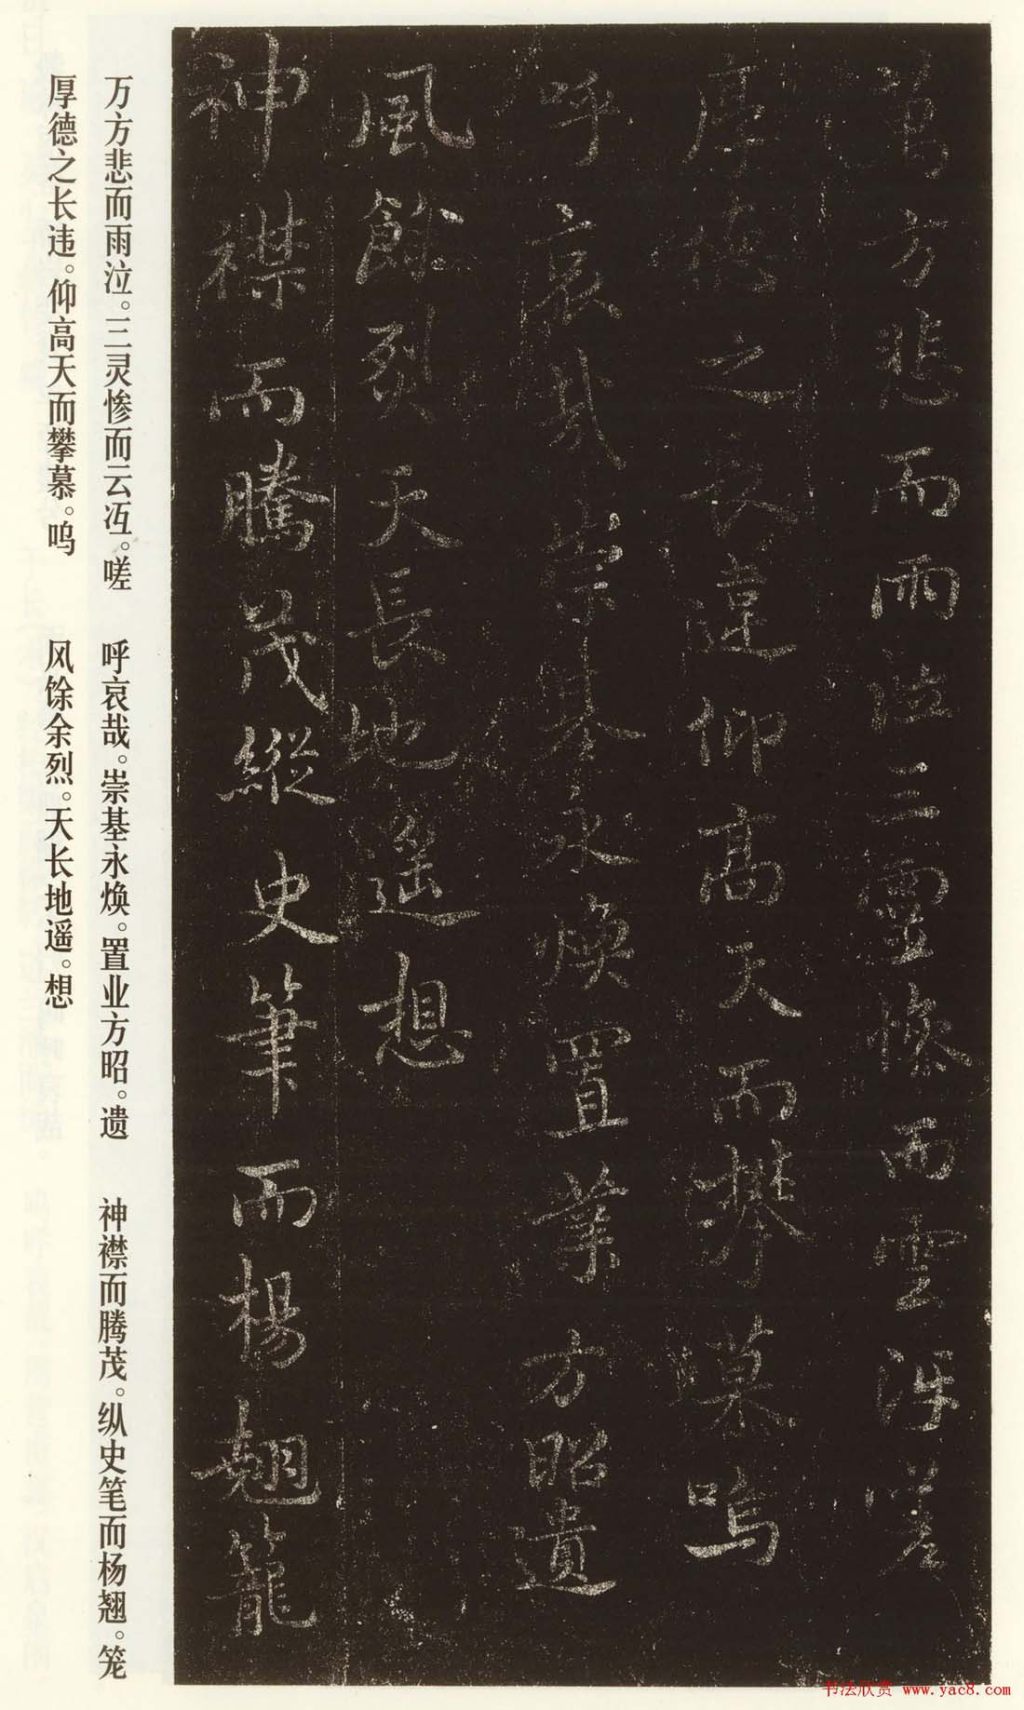 萬方悲而雨泣三靈慘而雲沍嗟
厚德之長違仰高天而攀慕嗚
呼哀哉崇基永煥置業方昭遺
風餘烈天長地遙想
神襟而騰茂縱史筆而楊翹籠
万方悲而雨泣。三灵惨而云冱。嗟
厚德之长违。仰高天而攀慕。呜
呼哀哉。崇基永焕。置业方昭。遗
风馀余烈。天长地遥。想
神襟而腾茂。纵史笔而杨翘。笼
书法欣赏 www.yac8.com